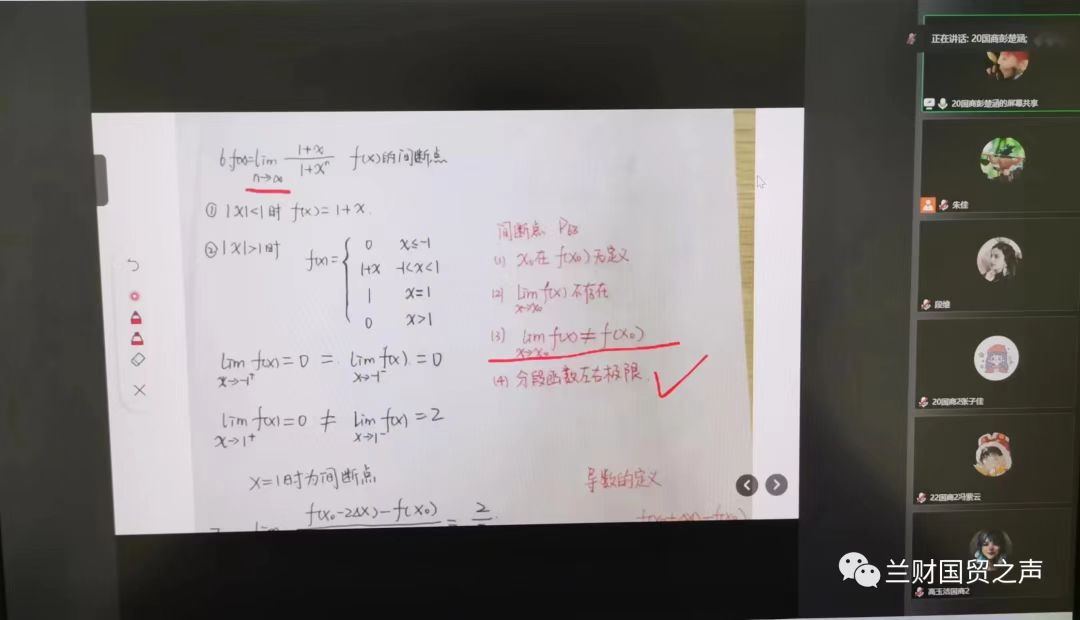 正在讲话: 20国商彭楚涵;
20国商彭楚涵的屏幕共享
朱佳
段维
20国商2张子佳
22国商2冯紫云
高玉洁国商2
6 f(x)=lim n→∞ (1+x)/(1+xⁿ) f(x)的间断点
① |x|<1时 f(x)=1+x.
② |x|>1时
f(x)={
0 x≤-1
1+x -1<x<1
1 x=1
0 x>1
lim x→-1⁺ f(x)=0 = lim x→-1⁻ f(x)=0
lim x→1⁺ f(x)=0 ≠ lim x→1⁻ f(x)=2
x=1时为间断点
f(x₀-2Δx)-f(x₀) = 2
间断点
(1) x₀在f(x₀)无定义
(2) lim x→x₀ f(x)不存在
(3) lim x→x₀ f(x)≠f(x₀)
(4) 分段函数左右极限.
导数的定义
兰财国贸之声